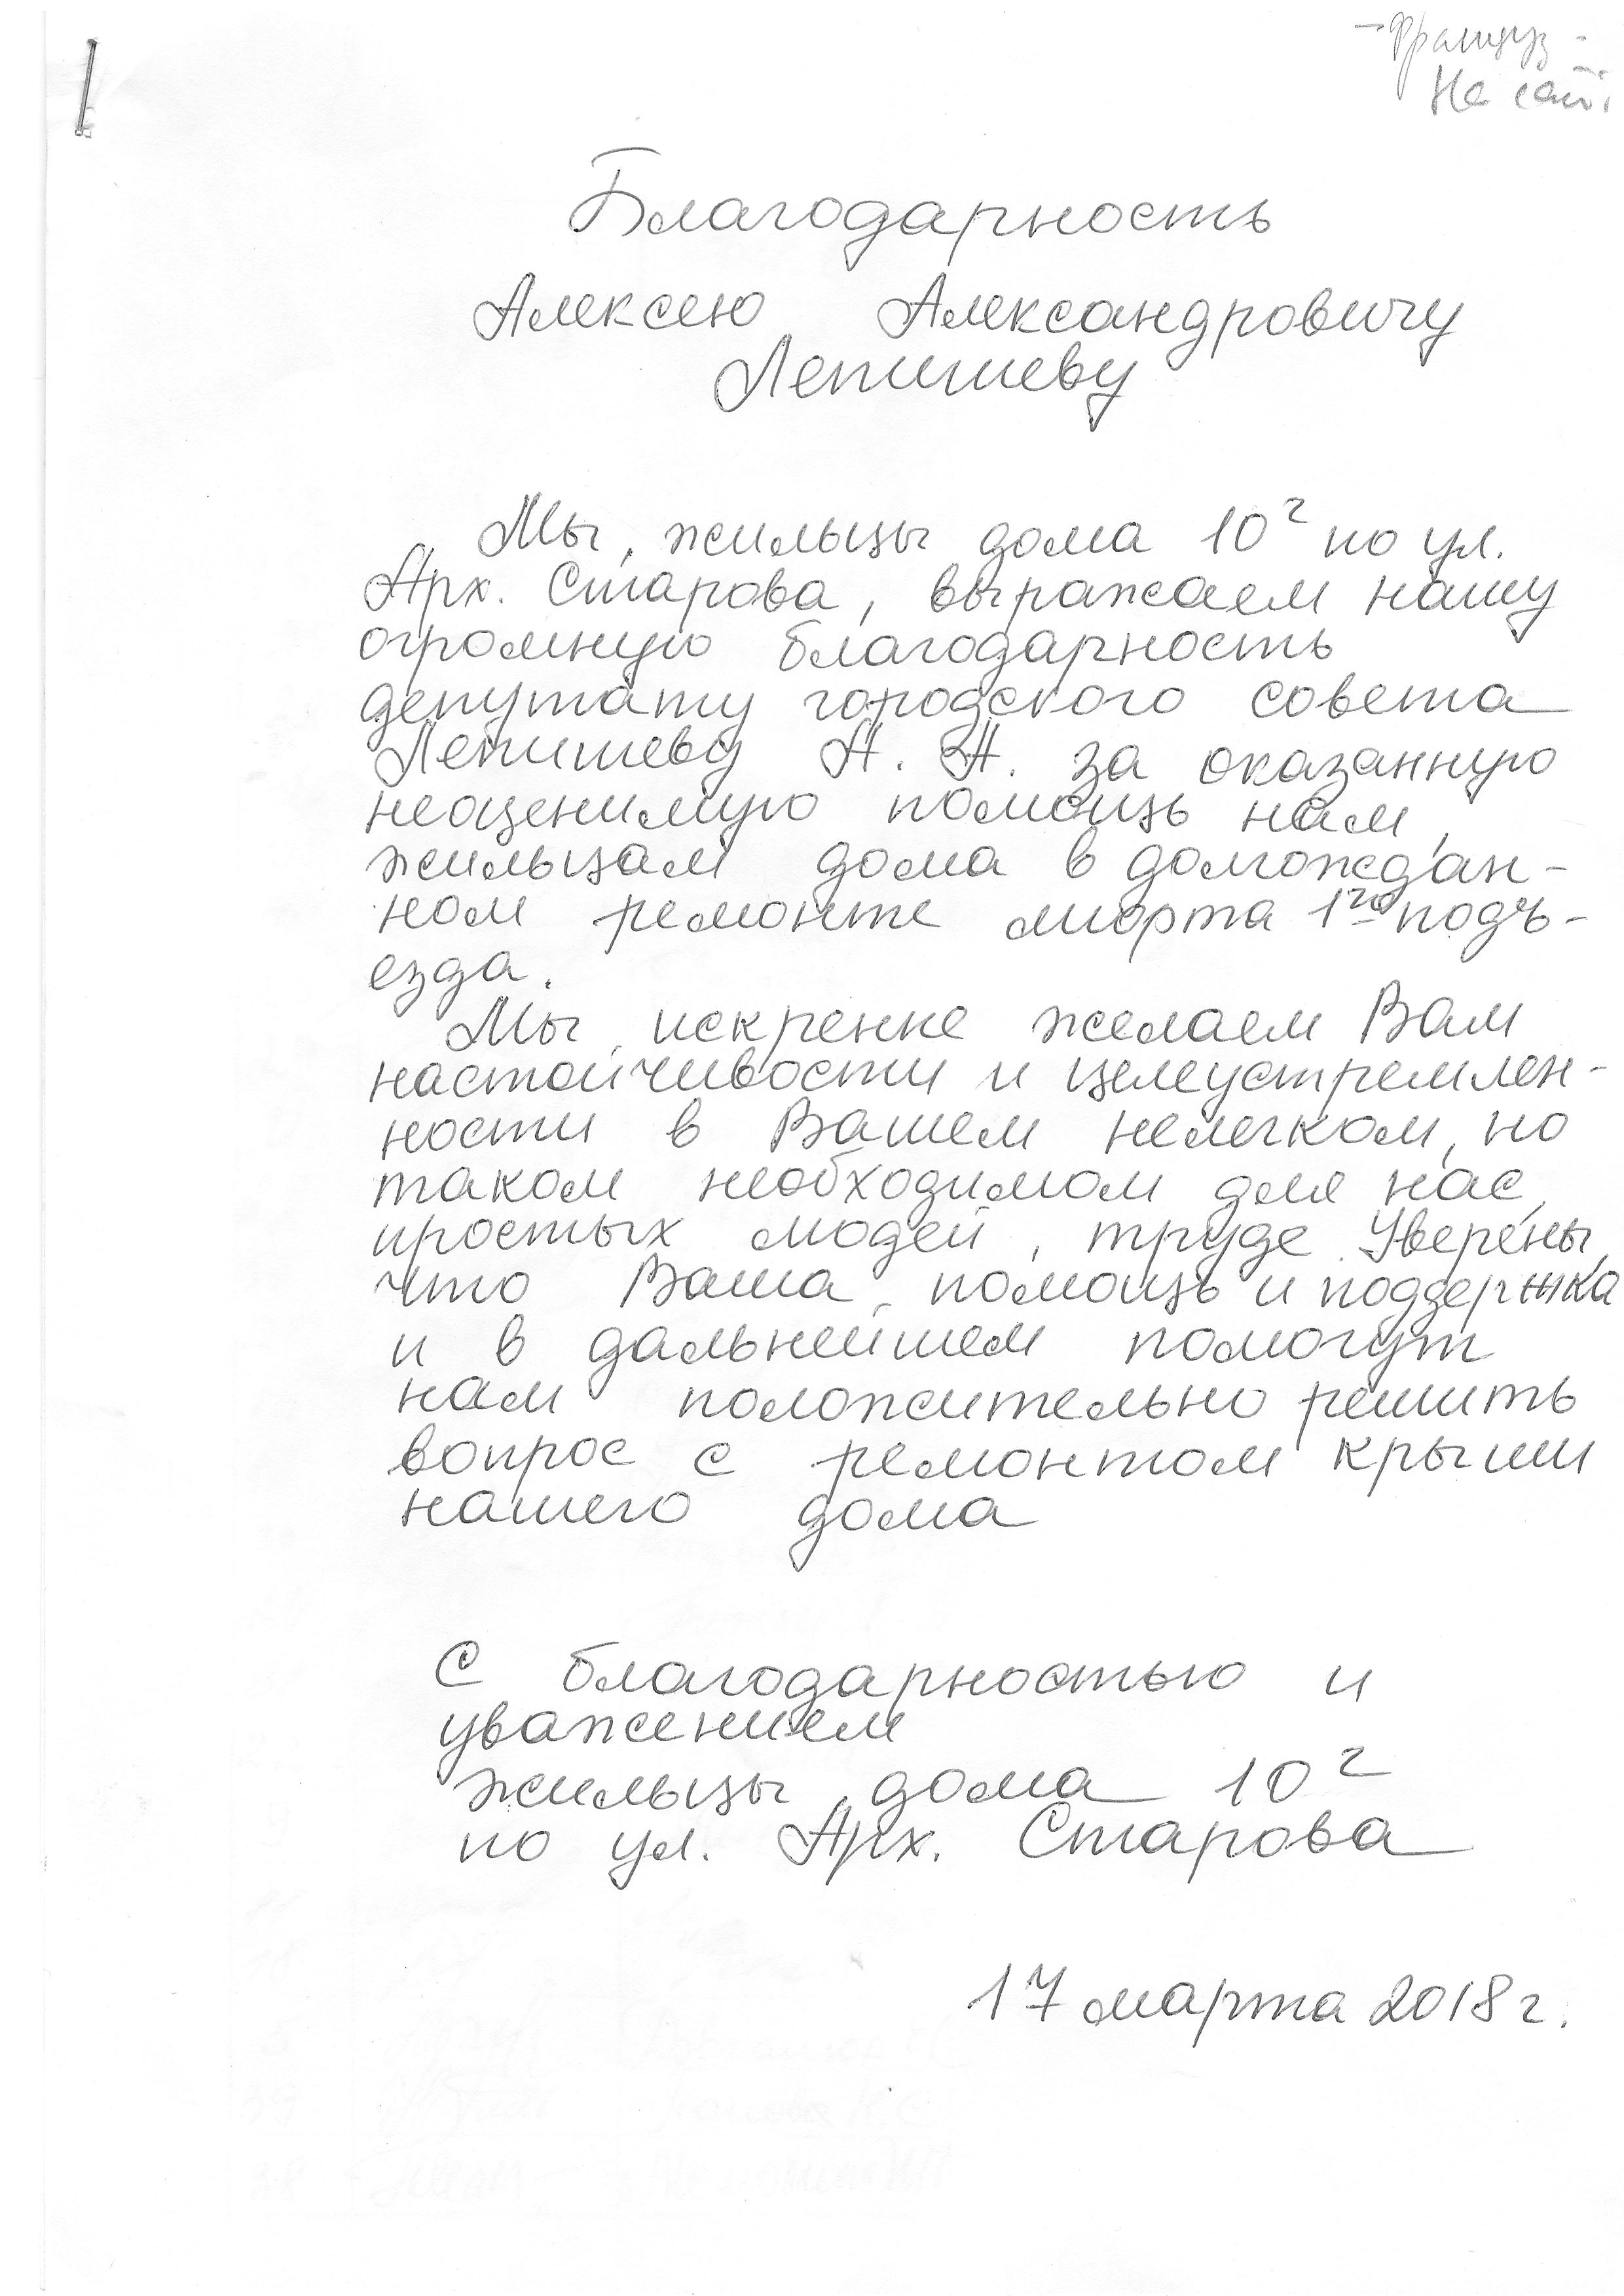 На сайт
Благодарность
Алексею Александровичу
Лепишеву
Мы, жильцы дома 10г по ул.
Арх. Старова, выражаем нашу
огромную благодарность
депутату городского совета
Лепишеву А. А. за оказанную
неоценимую помощь нам,
жильцам дома в долгождан-
ном ремонте лифта 1го подъ-
езда.
Мы искренне желаем Вам
настойчивости и целеустремлен-
ности в Вашем нелегком, но
таком необходимом для нас,
простых людей, труде. Уверены,
что Ваша помощь и поддержка
и в дальнейшем помогут
нам положительно решить
вопрос с ремонтом крыши
нашего дома
С благодарностью и
уважением
жильцы дома 10г
по ул. Арх. Старова
17 марта 2018 г.